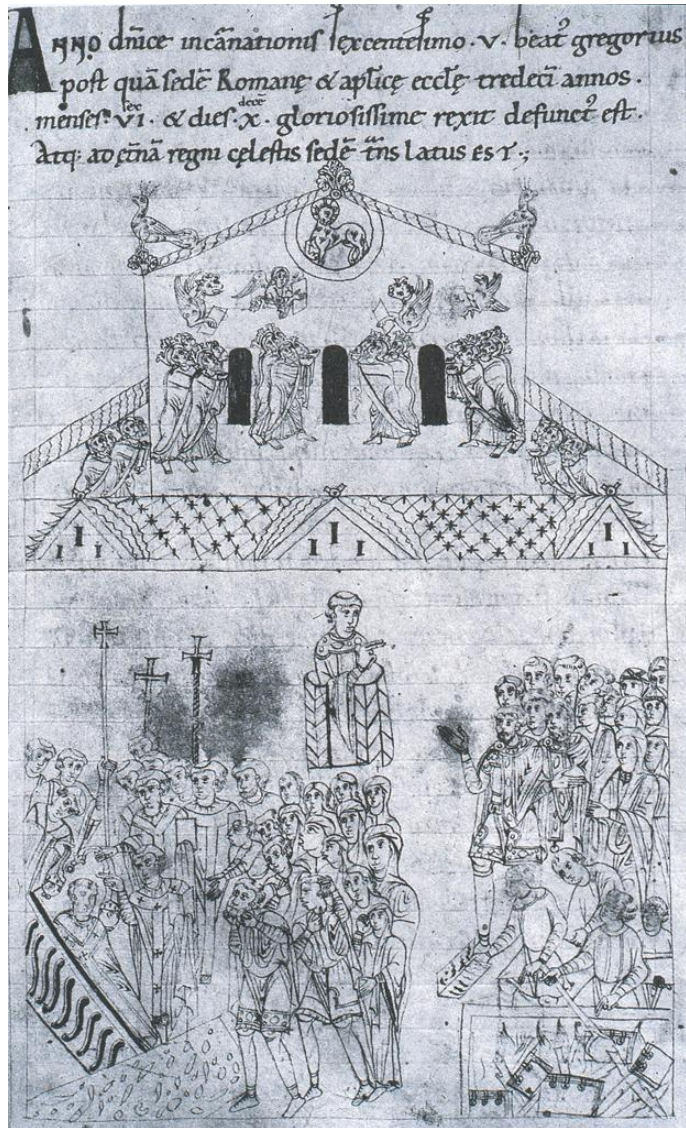 Anno dn̄ice incarnationis sexcentesimo · v · beat᾽ gregorius
post quā sedē Romanę & apl̄icę eccl̄ę tredeci annos ·
menses · vi sex · & dies · x decē · gloriosissime rexit defunct᾽ est ·
Atq; ad ęt̄nā regni cęlestis sedē t̄ns latus est ·;